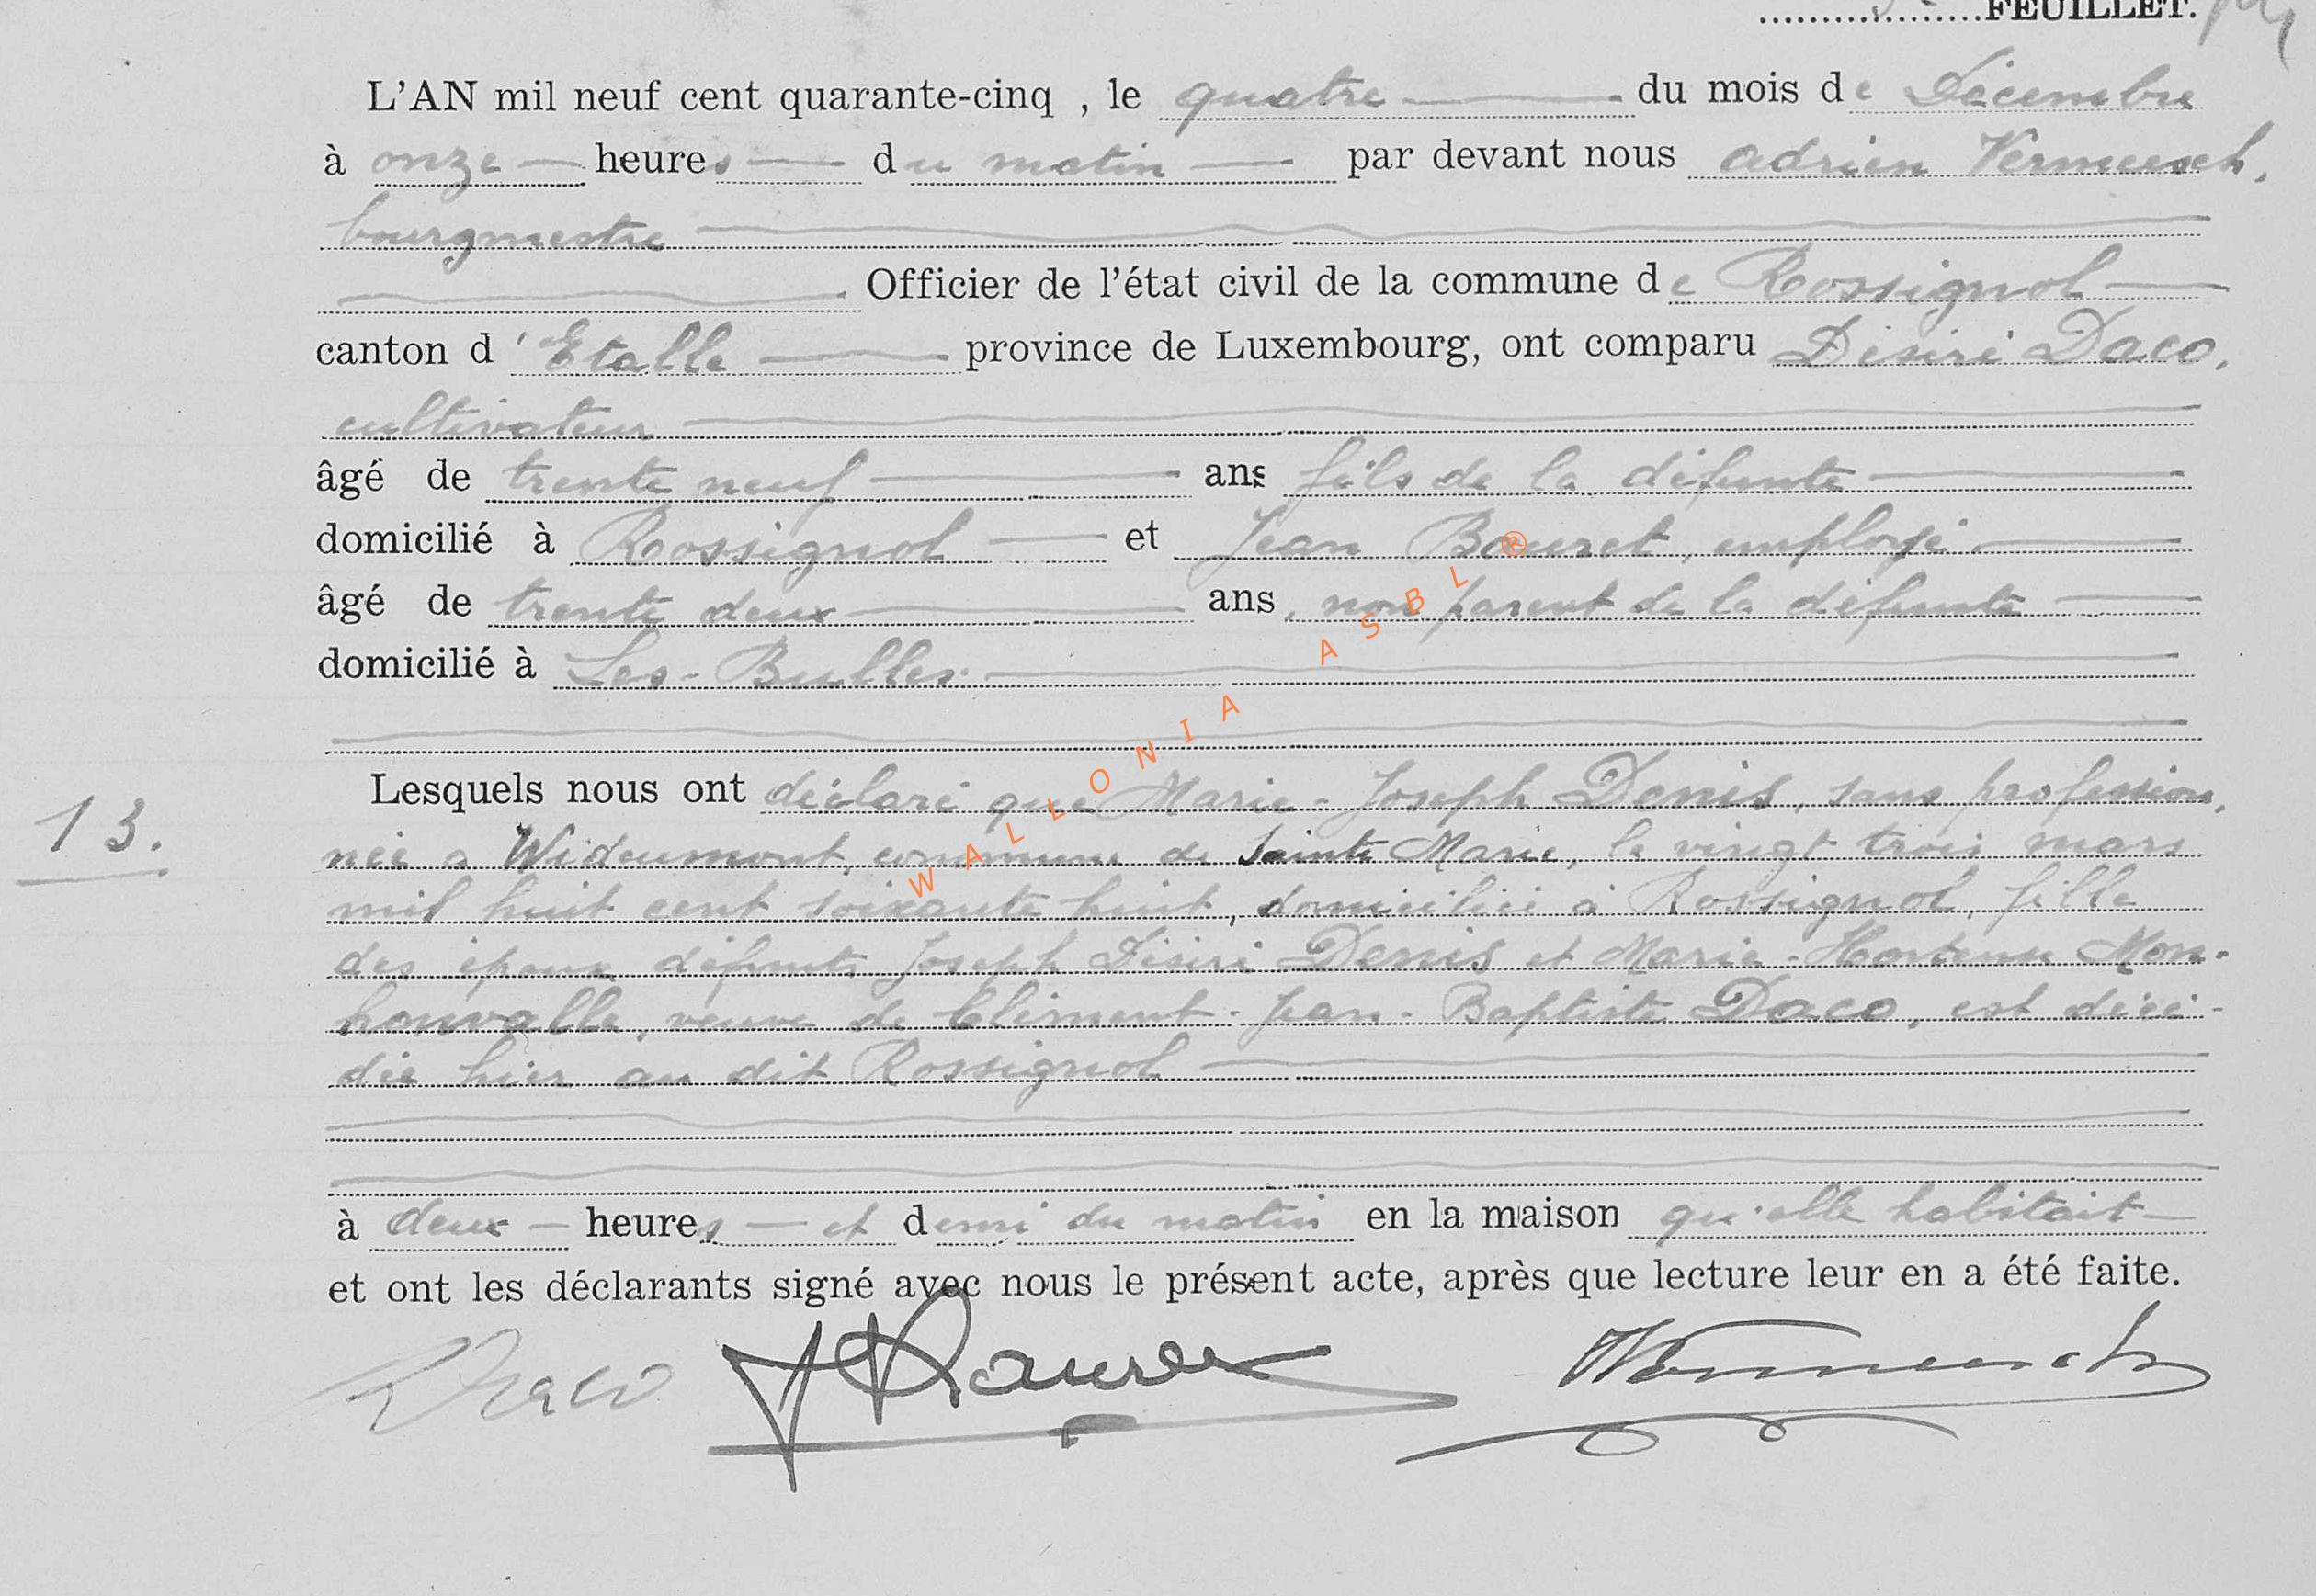 FEUILLET.
L'AN mil neuf cent quarante-cinq , le quatre du mois de Décembre
à onze heures du matin par devant nous Adrien Vermeersch,
bourgmestre
Officier de l'état civil de la commune de Rossignol
canton d'Etalle province de Luxembourg, ont comparu Désiré Daco,
cultivateur
âgé de trente neuf ans fils de la défunte
domicilié à Rossignol et Jean Bouret, employé
âgé de trente deux ans, non parent de la défunte
domicilié à Les-Bulles
Lesquels nous ont déclaré que Marie-Joseph Denis, sans profession,
13.
née à Wideumont, commune de Sainte Marie, le vingt trois mars
mil huit cent soixante huit, domiciliée à Rossignol, fille
des époux défunts Joseph Désiré Denis et Marie-Hortense Mon-
honvalle, veuve de Clément-Jean-Baptiste Daco, est décé-
dée hier au dit Rossignol
à deux heures et demi du matin en la maison qu'elle habitait
et ont les déclarants signé avec nous le présent acte, après que lecture leur en a été faite.
Daco
WALLONIA ASBL ®